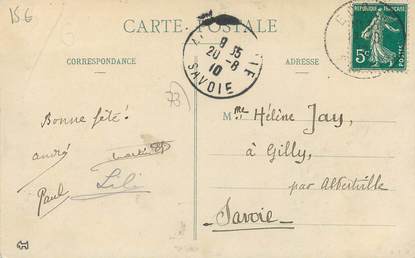 15.6
CARTE POSTALE
CORRESPONDANCE
ADRESSE
8 35
20 -8
10
SAVOIE
RÉPUBLIQUE FRANÇAISE
5c
POSTES
73)
Bonne fête!
andré
Paul
Lili
Mme Hélène Jay,
à Gilly,
par Albertville
Savoie